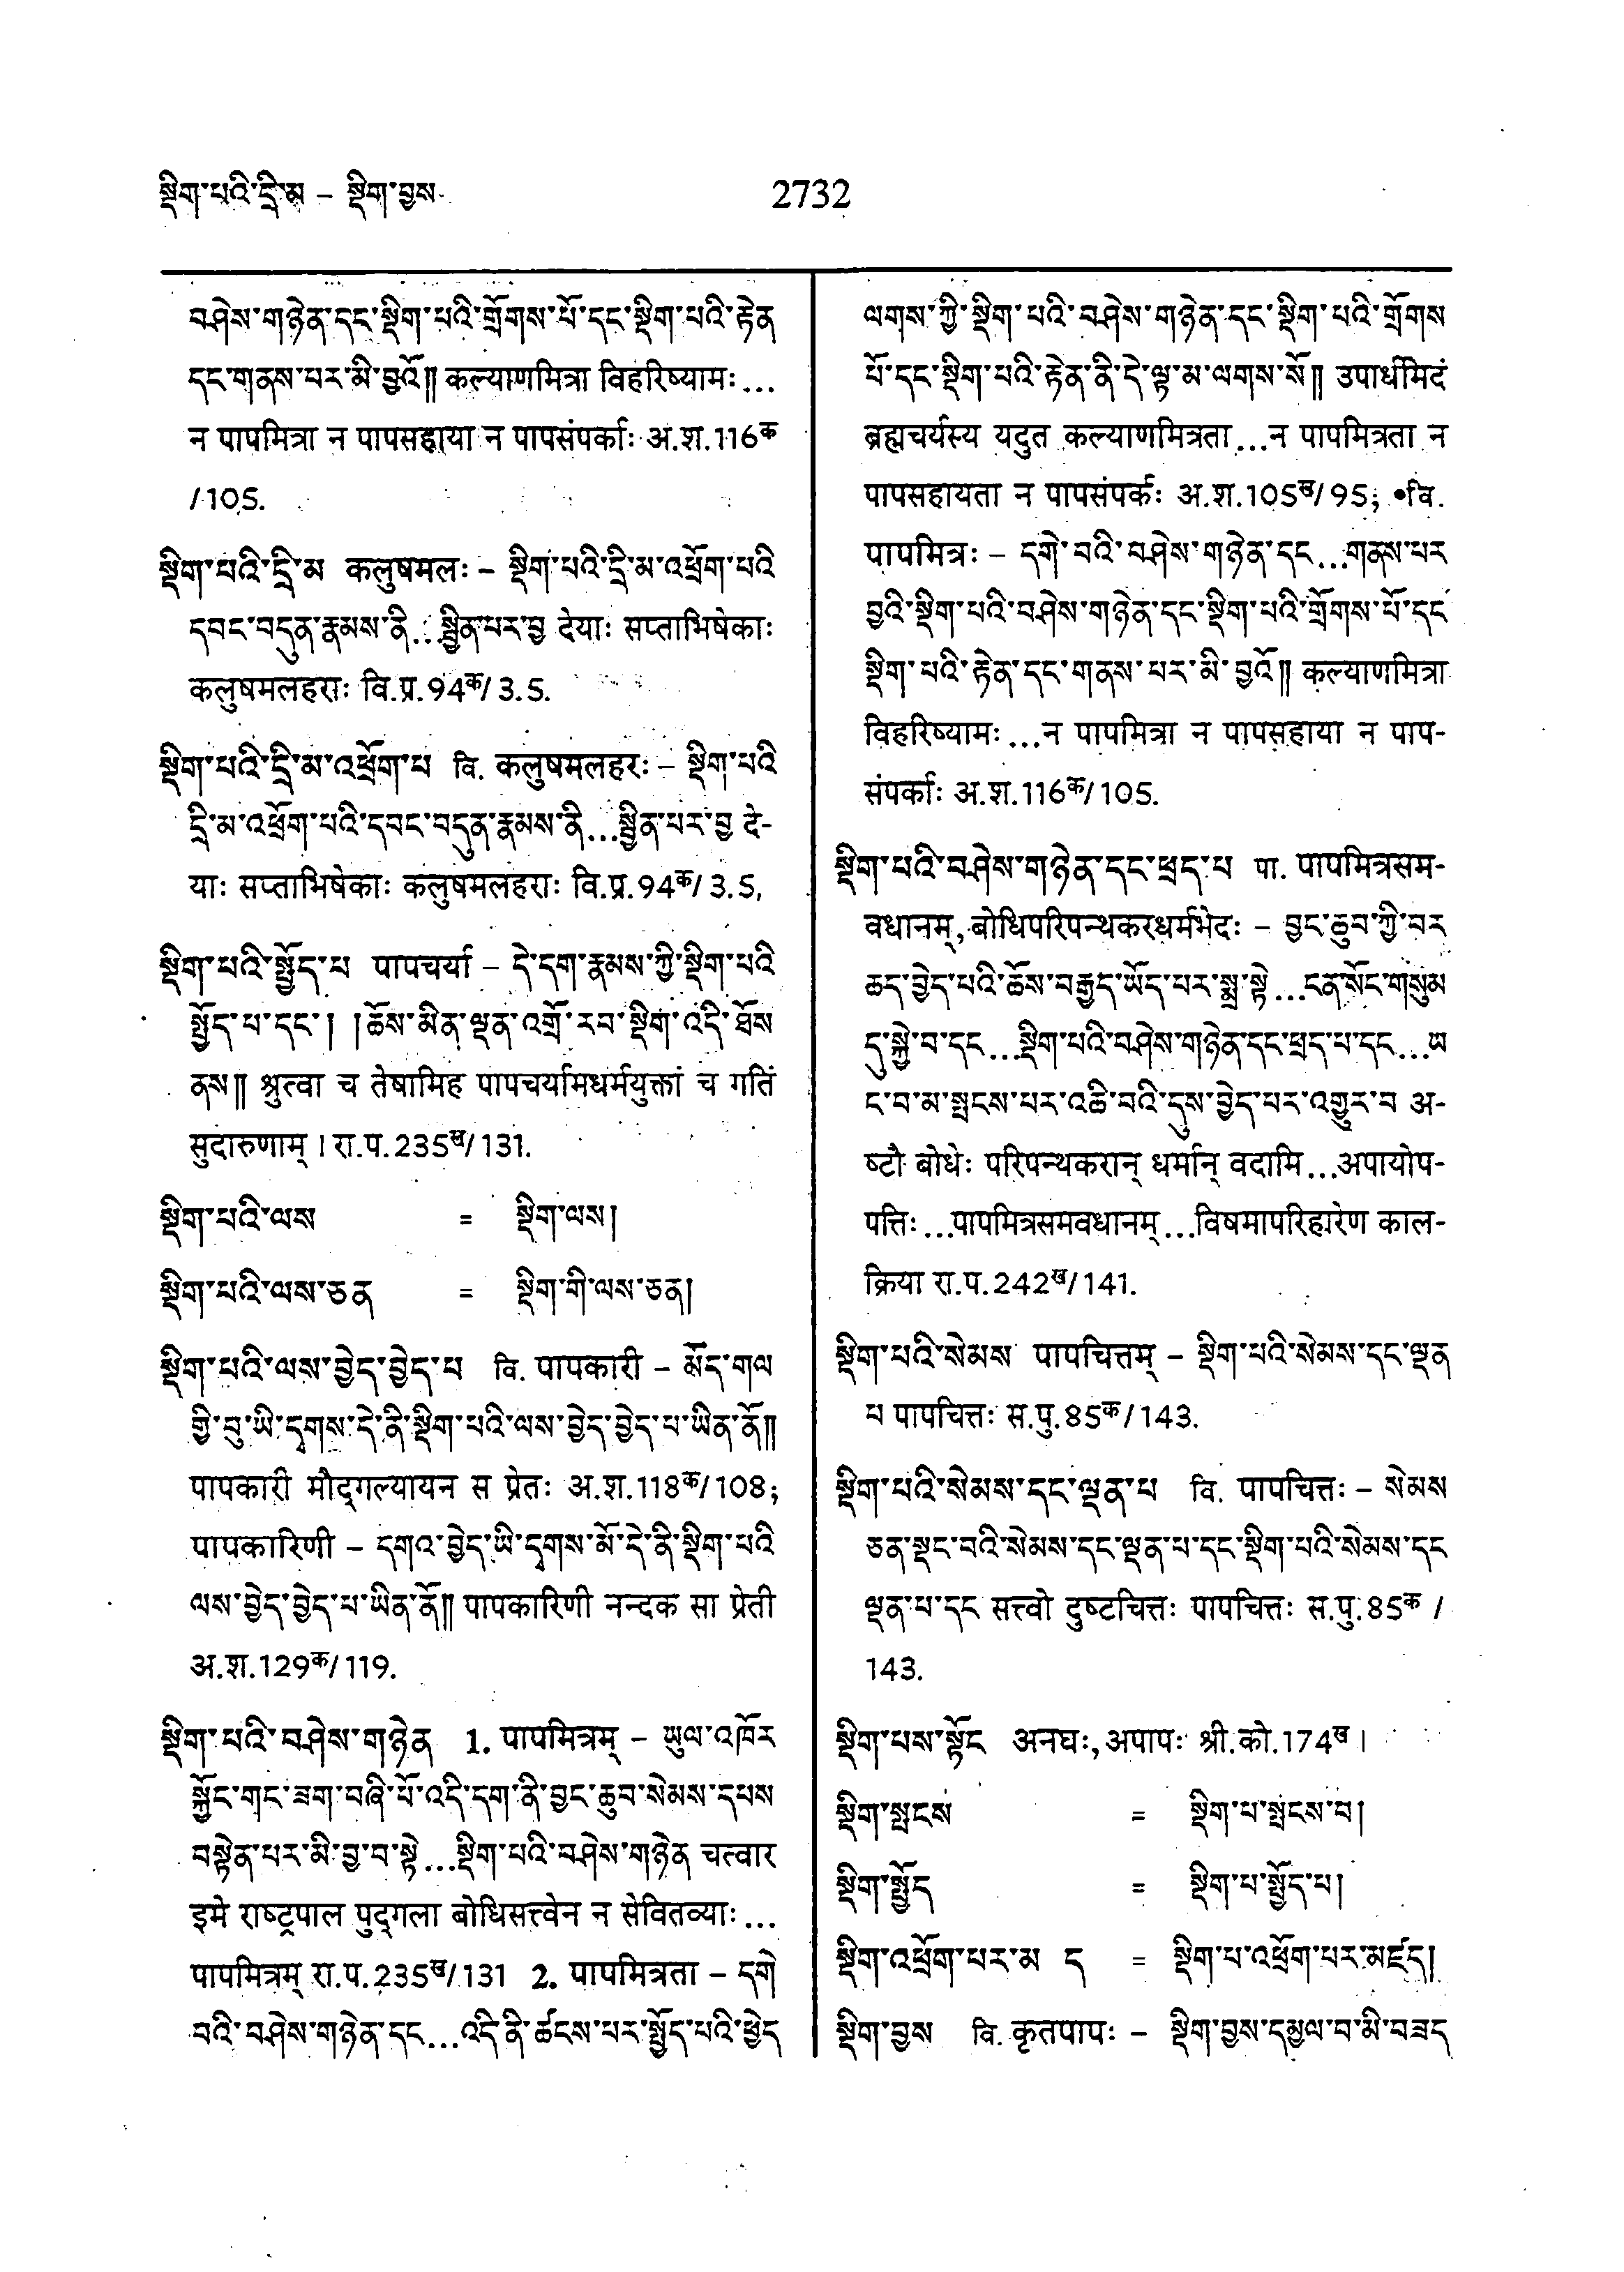 སྡིག་པའི་དྲི་མ – སྡིག་བྱས
2732
བཤེས་གཉེན་དང་སྡིག་པའི་གྲོགས་པོ་དང་སྡིག་པའི་རྟེན
དང་གནས་པར་མི་བྱའོ༎ कल्याणमित्रा विहरिष्यामः...
न पापमित्रा न पापसहाया न पापसंपर्काः अ.श.116क
/105.
སྡིག་པའི་དྲི་མ कलुषमलः – སྡིག་པའི་དྲི་མ་འཕྲོག་པའི
དབང་བདུན་རྣམས་ནི...སྦྱིན་པར་བྱ देयाः सप्ताभिषेकाः
कलुषमलहराः वि.प्र.94क/3.5.
སྡིག་པའི་དྲི་མ་འཕྲོག་པ वि. कलुषमलहरः – སྡིག་པའི
དྲི་མ་འཕྲོག་པའི་དབང་བདུན་རྣམས་ནི...སྦྱིན་པར་བྱ दे-
याः सप्ताभिषेकाः कलुषमलहराः वि.प्र.94क/3.5,
སྡིག་པའི་སྤྱོད་པ पापचर्या – དེ་དག་རྣམས་ཀྱི་སྡིག་པའི
སྤྱོད་པ་དང་། །ཆོས་མིན་ལྡན་འགྲོ་རབ་སྡིག་འདི་ཐོས
ནས༎ श्रुत्वा च तेषामिह पापचर्यामधर्मयुक्तां च गतिं
सुदारुणाम् । रा.प.235ख/131.
སྡིག་པའི་ལས = སྡིག་ལས།
སྡིག་པའི་ལས་ཅན = སྡིག་གི་ལས་ཅན།
སྡིག་པའི་ལས་བྱེད་བྱེད་པ वि. पापकारी – མོད་གལ
གྱི་བུ་ཡི་དྭགས་དེ་ནི་སྡིག་པའི་ལས་བྱེད་བྱེད་པ་ཡིན་ནོ༎
पापकारी मौद्गल्यायन स प्रेतः अ.श.118क/108;
पापकारिणी – དགའ་བྱེད་ཡི་དྭགས་མོ་དེ་ནི་སྡིག་པའི
ལས་བྱེད་བྱེད་པ་ཡིན་ནོ༎ पापकारिणी नन्दक सा प्रेती
अ.श.129क/119.
སྡིག་པའི་བཤེས་གཉེན 1. पापमित्रम् – ཡུལ་འཁོར
སྐྱོང་གང་ཟག་བཞི་པོ་འདི་དག་ནི་བྱང་ཆུབ་སེམས་དཔས
བསྟེན་པར་མི་བྱ་བ་སྟེ...སྡིག་པའི་བཤེས་གཉེན चत्वार
इमे राष्ट्रपाल पुद्गला बोधिसत्त्वेन न सेवितव्याः...
पापमित्रम् रा.प.235ख/131 2. पापमित्रता – དགེ
བའི་བཤེས་གཉེན་དང...འདི་ནི་ཚངས་པར་སྤྱོད་པའི་ཕྱེད
ལགས་ཀྱི་སྡིག་པའི་བཤེས་གཉེན་དང་སྡིག་པའི་གྲོགས
པོ་དང་སྡིག་པའི་རྟེན་ནི་དེ་ལྟ་མ་ལགས་སོ༎ उपार्धमिदं
ब्रह्मचर्यस्य यदुत कल्याणमित्रता...न पापमित्रता न
पापसहायता न पापसंपर्कः अ.श.105ख/95; •वि.
पापमित्रः – དགེ་བའི་བཤེས་གཉེན་དང...གནས་པར
བྱའི་སྡིག་པའི་བཤེས་གཉེན་དང་སྡིག་པའི་གྲོགས་པོ་དང
སྡིག་པའི་རྟེན་དང་གནས་པར་མི་བྱའོ༎ कल्याणमित्रा
विहरिष्यामः...न पापमित्रा न पापसहाया न पाप-
संपर्काः अ.श.116क/105.
སྡིག་པའི་བཤེས་གཉེན་དང་ཕྲད་པ पा. पापमित्रसम-
वधानम्, बोधिपरिपन्थकरधर्मभेदः – བྱང་ཆུབ་ཀྱི་བར
ཆད་བྱེད་པའི་ཆོས་བརྒྱད་ཡོད་པར་སྨྲ་སྟེ...ངན་སོང་གསུམ
དུ་སྐྱེ་བ་དང...སྡིག་པའི་བཤེས་གཉེན་དང་ཕྲད་པ་དང...ཡ
ང་བ་མ་སྤངས་པར་འཆི་བའི་དུས་བྱེད་པར་འགྱུར་བ अ-
ष्टौ बोधेः परिपन्थकरान् धर्मान् वदामि...अपायोप-
पत्तिः...पापमित्रसमवधानम्...विषमापरिहारेण काल-
क्रिया रा.प.242ख/141.
སྡིག་པའི་སེམས पापचित्तम् – སྡིག་པའི་སེམས་དང་ལྡན
པ पापचित्तः स.पु.85क/143.
སྡིག་པའི་སེམས་དང་ལྡན་པ वि. पापचित्तः – སེམས
ཅན་སྡང་བའི་སེམས་དང་ལྡན་པ་དང་སྡིག་པའི་སེམས་དང
ལྡན་པ་དང सत्त्वो दुष्टचित्तः पापचित्तः स.पु.85क /
143.
སྡིག་པས་སྟོང अनघः, अपापः श्री.को.174ख ।
སྡིག་སྤངས = སྡིག་པ་སྤངས་བ།
སྡིག་སྤྱོད = སྡིག་པ་སྤྱོད་པ།
སྡིག་འཕྲོག་པར་མ ད = སྡིག་པ་འཕྲོག་པར་མཛད།
སྡིག་བྱས वि. कृतपापः – སྡིག་བྱས་དམྱལ་བ་མི་བཟད